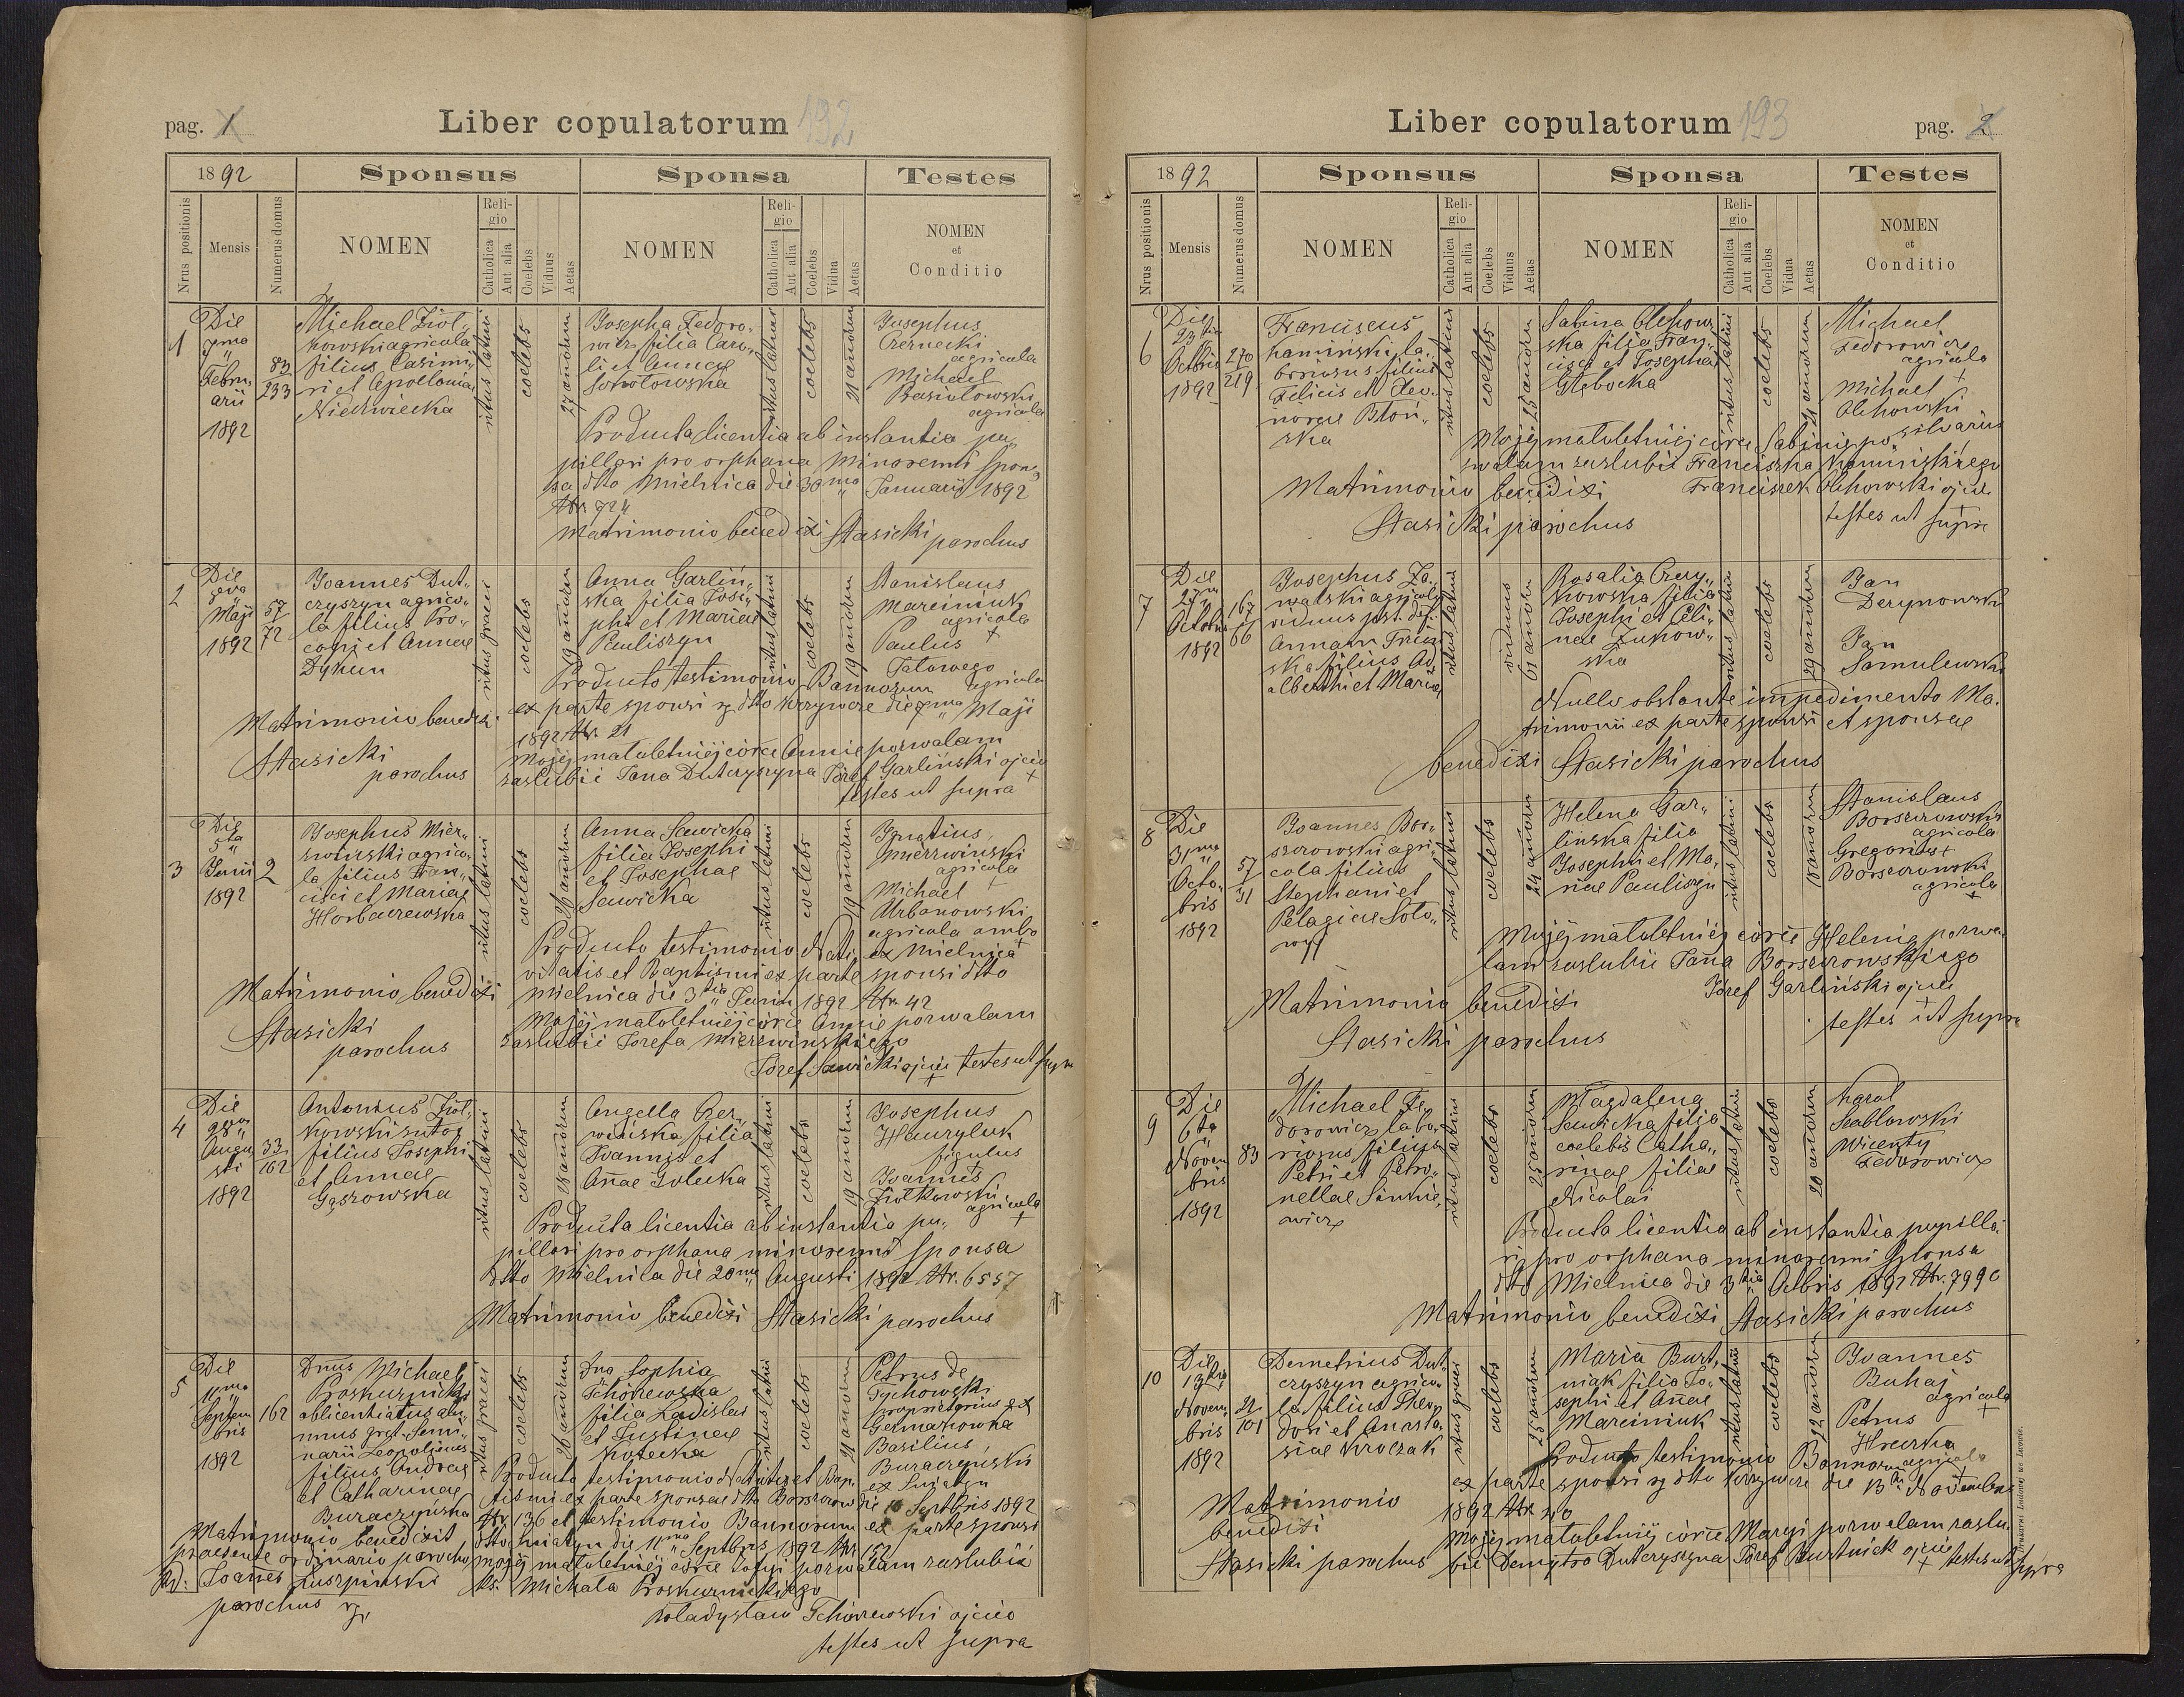 pag. 1
Liber copulatorum 192
1892
Sponsus
Sponsa
Testes
Nrus positionis
Mensis
Numerus domus
NOMEN
Religio
Catholica
Aut alia
Coelebs
Viduus
Aetas
NOMEN
Religio
Catholica
Aut alia
Coelebs
Vidua
Aetas
NOMEN
et
Conditio
1
Die
7ma
Febru
arii
1892
83
233
Michael Ziol„
kowski agricola
filius Casimi„
ri et Apolonia
Niedzwiecka
ritus latini
coelebs
27 annorum
Josepha Fedoro„
wicz filia Caro„
li et Annae
Sokołowska
ritus latini
coelebs
21 annorum
Josephus
Czernecki
agricola
Michael
agricola
Producta licentia ab instantia pu„
pillari pro orphana minorenni spon„
sa dtto Mielnica die 30ma Januarii 1892
Nr. 724
Matrimonio benedixi Stasicki parochus
2
Die
Maji
1892
57
72
Joannes Dut„
czyszyn agrico„
la filius Pro„
copi et Annae
Dykun
ritus graeci
coelebs
19 annorum
Anna Garliń„
ska filia Jose„
phi et Mariae
Pauliszyn
ritus latini
coelebs
19 annorum
Stanislaus
Marciniuk
agricola
+
Paulus
agricola
Producto testimonio Bannorum
ex parte sponsi dtto Krzywcze die 7ma Maji
1892 Nr. 21
Matrimonio benedixi
Stasicki
parochus
Mojej małoletniej córce Annie pozwalam
zaślubić Jana Dutczyszyna Józef Garliński ojciec
+
testes ut supra
3
Die
5ta
Junii
1892
2
Josephus Mier„
zwiński agrico„
la filius Fran„
cisci et Mariae
Horbaczewska
ritus latini
coelebs
26 annorum
Anna Sawicka
filia Josephi
et Josephae
Sawicka
ritus latini
coelebs
19 annorum
Ignatius
Mierzwinski
agricola
+
Michael
Urbanowski
agricola ambo
ex Mielnica
+
Producto testimonio Nati„
vitatis et Baptismi ex parte sponsi dtto
Mielnica die 3tia Junii 1892 Nr. 42
Matrimonio benedixi
Stasicki
parochus
Mojej małoletniej córce Annie pozwalam
zaślubić Józefa Mierzwinskiego
Józef Sawicki ojciec testes ut supra
+
4
Die
28va
Augu
sti
1892
33
162
Antonius Ziol„
kowski sutor
filius Josephi
et Annae
Gąszowska
ritus latini
coelebs
28 annorum
Angella Rez„
wińska filia
Joannis et
Annae
ritus latini
coelebs
19 annorum
Josephus
Hawryluk
figulus
Joannes
Ziolkowski
agricola
+
Producta licentia ab instantia pu„
pillari pro orphana minorenni sponsa
dtto Mielnica die 20ma Augusti 1892 Nr. 6557
Matrimonio benedixi Stasicki parochus
5
Die
11ma
Septem
bris
1892
162
Dnus Michael
Proskurnicki
ablicentiatus alu„
mnus graet. Semi„
narii Leopoliensis
filius Andreae
et Catharinae
Buraczyńska
ritus graeci
coelebs
26 annorum
Dna Sophia
Tchórzewska
filia Ladislai
et Justinae
Kotecka
ritus latini
coelebs
21 annorum
Petrus de
Tychowski
proprietarius ex
Germakowka
Basilius
Buraczyński
ex Sniatyn
Producto testimonio Nativitatis et Bap„
tismi ex parte sponsae dtto Borszczow die 10 Septbris 1892
Nr. 136 et testimonio Bannorum ex parte sponsi
dtto Sniatyn die 11ma Septbris 1892 Nr. 152
Matrimonio benedixit
praesente ordinario parocho
Joanes
parochus
Mojej małoletniej córce Zofyi pozwalam zaślubić
Ks. Michała Proskurnickiego
Władysław Tchórzewski ojciec
testes ut supra
Liber copulatorum 193
pag. 2
1892
Sponsus
Sponsa
Testes
Nrus positionis
Mensis
Numerus domus
NOMEN
Religio
Catholica
Aut alia
Coelebs
Viduus
Aetas
NOMEN
Religio
Catholica
Aut alia
Coelebs
Vidua
Aetas
NOMEN
et
Conditio
6
Die
23tia
Octbris
1892
270
219
Franciscus
Kamiński la„
boriosus filius
Felicis et Eleo„
norae Błoń„
ska
ritus latini
coelebs
25 annorum
Sabina Olchow„
ska filia Fran„
cisci et Josepha
Głębocka
ritus latini
coelebs
21 annorum
Michael
Fedorowicz
agricola
+
Michael
Olchowski
silvarius
Mojej małoletniej córce Sabinie po„
zwalam zaślubić Franciszka Kamińskiego
Franciszek Olchowski ojciec
+
testes ut supra
Matrimonio benedixi
Stasicki parochus
7
Die
27ma
Octobris
1892
167
66
Josephus Za„
walski agricola
viduus post. def.
Annam
ska filius Ad
alberthi et Maria
ritus latini
viduus
61 annorum
Rosalia Czer„
kowska filia
Josephi et Celi„
nae Zukow„
ska
ritus latini
coelebs
29 annorum
Jan
Derynowski
Jan
Samulewski
Nullo obstante impedimento Ma„
trimonii ex parte sponsi et sponsae
benedixi Stasicki parochus
8
Die
31ma
Octo„
bris
1892
57
51
Joannes Bor„
szczowski agri„
cola filius
Stephani et
Pelagiae Soło„
wy
ritus latini
coelebs
24 annorum
Helena Gar„
linska filia
Josephi et Ma„
riae Pauliszyn
ritus latini
coelebs
18 annorum
Stanislaus
Borszczowski
agricola
Gregorius +
Borszczowski
agricola
+
Mojej małoletniej córce Helenie pozwa„
lam zaślubić Jana Borszczowskiego
Józef Garliński ojciec
+
testes ut supra
Matrimonio benedixi
Stasicki parochus
9
Die
6ta
Novem
bris
1892
83
Michael Fe„
dorowicz labo„
riosus filius
Petri et Petro„
nellae Simkie„
wicz
ritus latini
coelebs
25 annorum
Magdalena
Sawicka filia
coelebis Catha„
rinae filiae
Nicolai
ritus latini
coelebs
20 annorum
Karol
Szablowski
Wicenty
Fedorowicz
Producta licentia ab instantia pupilla„
ri pro orphana minorenni sponsa
dtto Mielnica die 3tia Octbris 1892 Nr. 7990
Matrimonio benedixi Stasicki parochus
10
Die
13tia
Novem
bris
1892
22
101
Demetrius Dut„
czyszyn agrico„
la filius Theo„
dosi et Anasta„
siae Kroczak
ritus graeci
coelebs
25 annorum
Maria Burt„
niak filia Jo„
sephi et Annae
Marciniuk
ritus latini
coelebs
22 annorum
Joannes
Buhaj
agricola
+
Petrus
Hreczka
agricola
+
Producto testimonio Bannorum
ex parte sponsi dtto Krzywcze die 13tia Novembris
1892 Nr. 40
Matrimonio
benedixi
Stasicki parochus
Mojej małoletniej córce Maryi pozwalam zaślu„
bić Demytra Dutczyszyna Józef Burtniak ojciec + testes ut supra
Drukarni Ludowej we Lwowie.